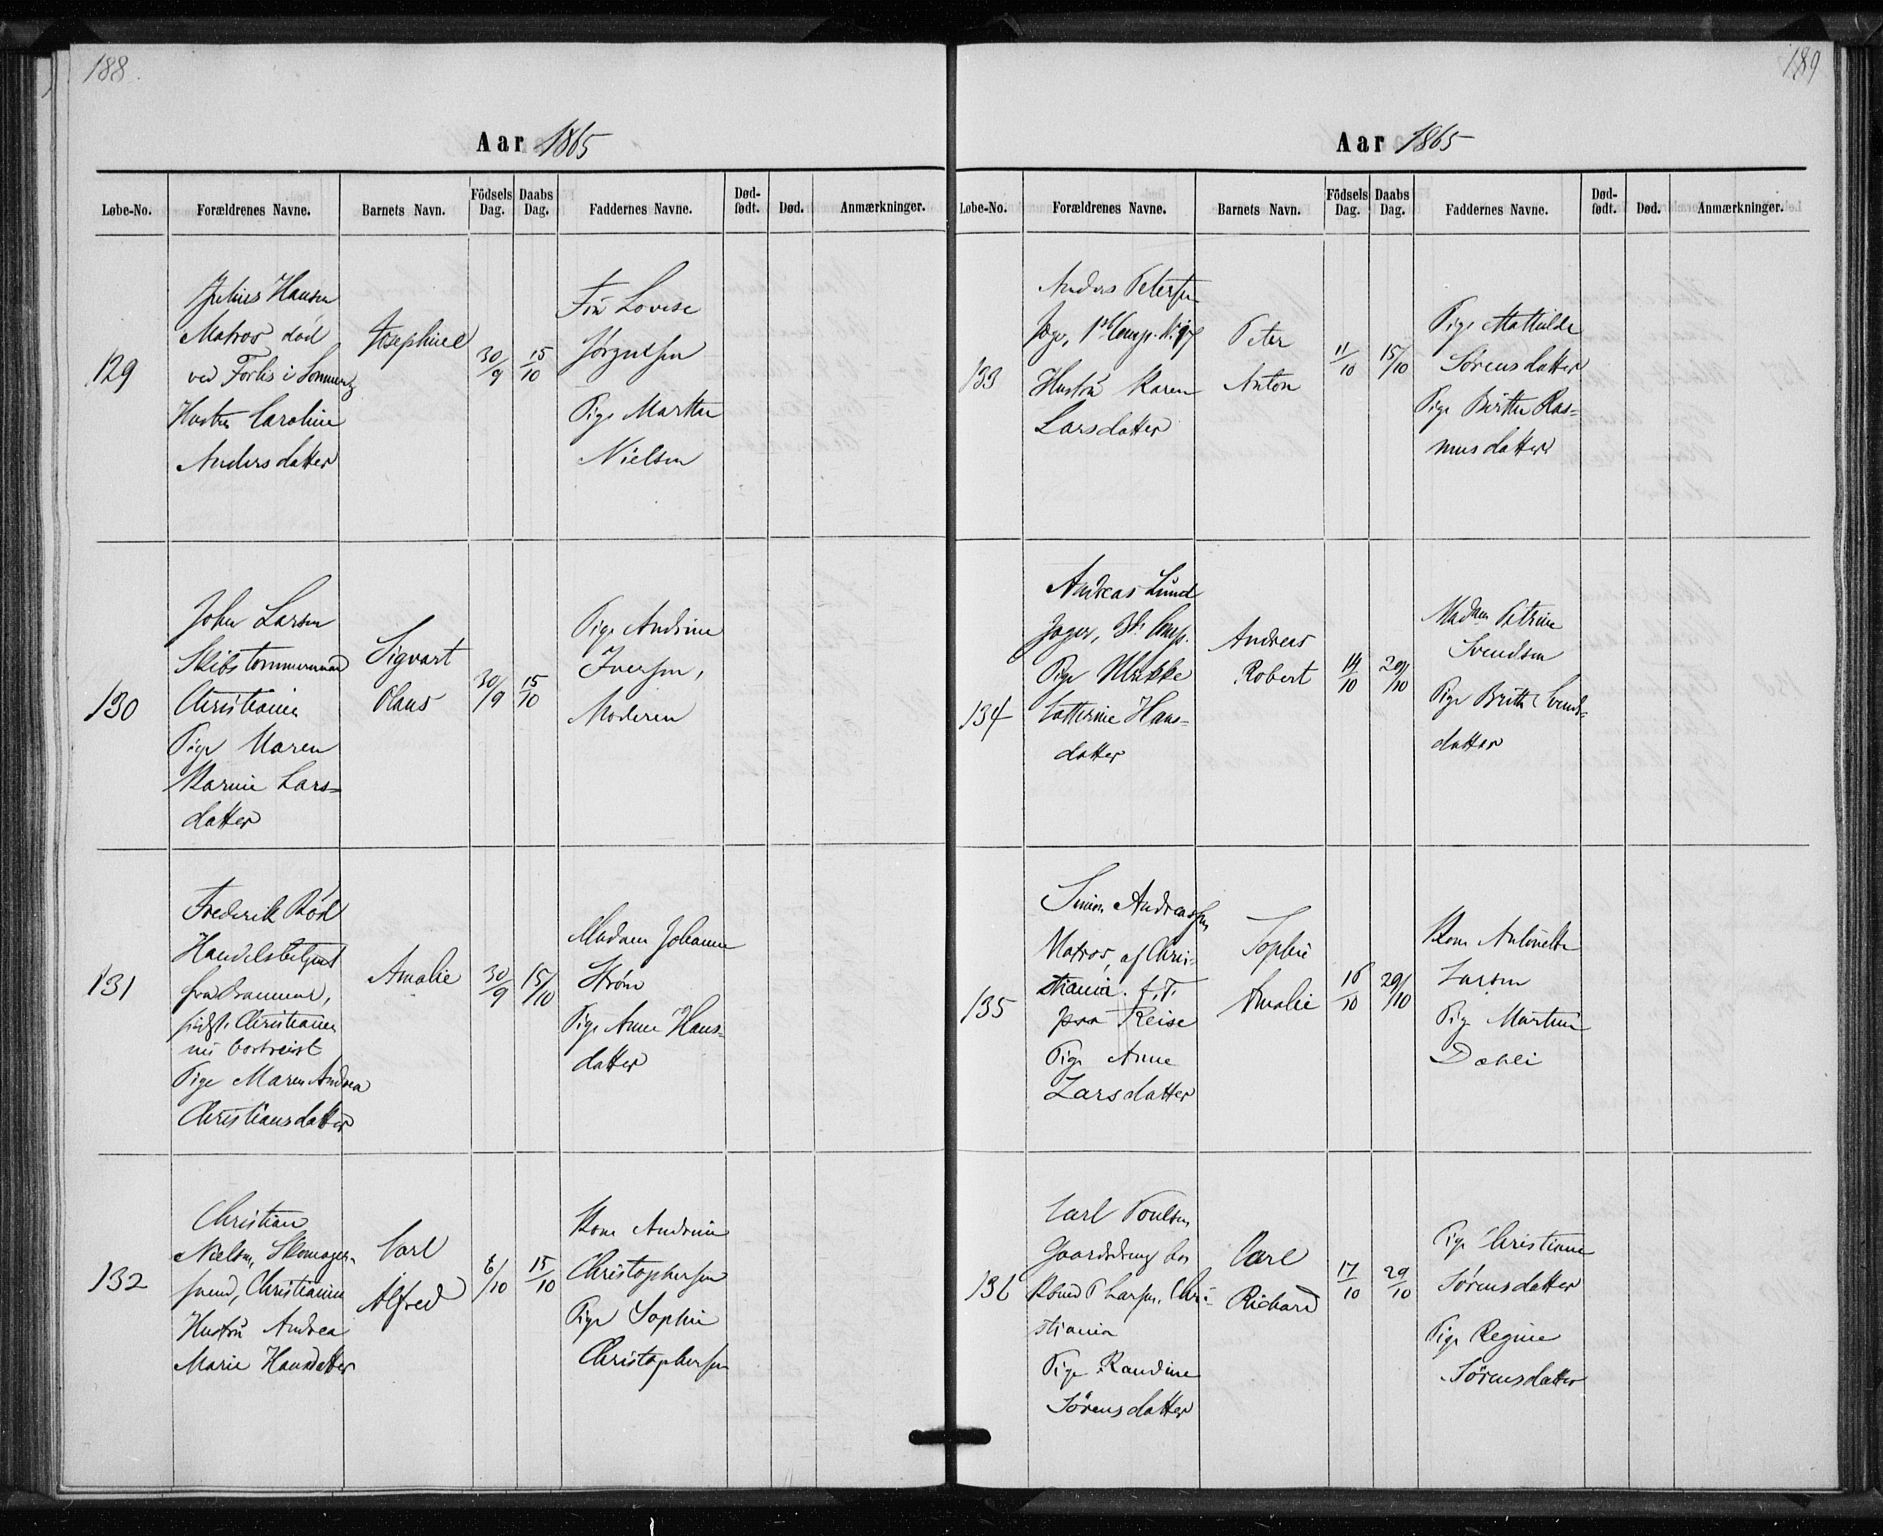 188.
Aar 1865
Løbe-No. Forældrenes Navne. Barnets Navn. Födsels Dag. Daabs Dag. Faddernes Navne. Død-født. Død. Anmærkninger.
129
Julius Hansen
Matros død
ved Forlis i Sommer
Hustru Caroline
Andersdatter
Josephine
30/9
15/10
Frü Lovise
Jørgensen
Pige Marthe
Nielsen
130
John Larsen
Skibstømmermand
Christiania
Pige Maren
Karine Lars=
datter
Sigvart
Olaus
30/9
15/10
Pige Andrine
Iversen,
Moderen
131
Frederik
Handelsbetjent
fra
Christiania
nu bortreist
Pige Maren Andrea
Christiansdatter
Amalie
30/9
15/10
Madam Johanne
Strøm
Pige Anne Hans-
datter
132
Christian
Nielsen, Skomager-
svend, Christiania
Hustrü Andrea
Marie Hansdatter
Carl
Alfred
6/10
15/10
Kone Andrine
Christophersen
Pige Sophie
Christophersen
189
Aar 1865
Løbe-No. Forældrenes Navne. Barnets Navn. Födsels Dag. Daabs Dag. Faddernes Navne. Død-født. Død. Anmærkninger.
133
Anders Petersen
Jæger, 1ste Comp.
Hustrü Karen
Larsdatter
Peter
Anton
11/10
15/10
Pige Mathilde
Sørensdatter
Pige Birthe Ras=
musdatter
134
Andreas Lund
Jæger, Comp.
Pige
Catterine Hans=
datter
Andreas
Robert
14/10
29/10
Madam Petrine
Svendsen
Pige Birthe Svends=
datter
135
Simon Andreassen
Matros, af Chri-
stiania. f.T.
paa Reise
Pige Anne
Larsdatter
Sophie
Amalie
16/10
29/10
Kone Antonette
Larsen
Pige Martine
Dæhli
136
Carl Poulsen
Gaardsdreng hos
Larsen, Chri-
stiania
Pige Randine
Sørensdatter
Carl
Richard
17/10
29/10
Pige Christiane
Sørensdatter
Pige Regine
Sørensdatter